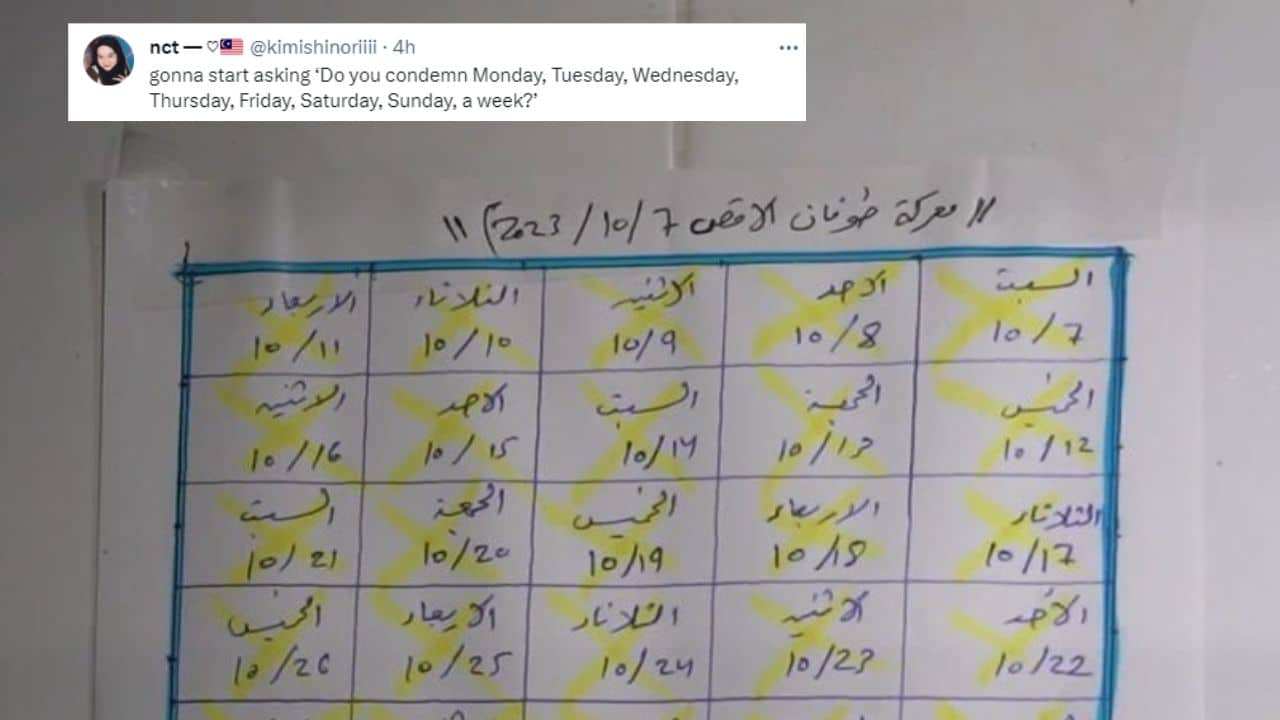 nct — ♡🇲🇾 @kimishinoriiii · 4h
gonna start asking ‘Do you condemn Monday, Tuesday, Wednesday,
Thursday, Friday, Saturday, Sunday, a week?’
" معركة طوفان الاقصى 7/10/2023م "
السبت الاحد الاثنين الثلاثاء الاربعاء
10/7 10/8 10/9 10/10 10/11
الخميس الجمعة السبت الاحد الاثنين
10/12 10/13 10/14 10/15 10/16
الثلاثاء الاربعاء الخميس الجمعة السبت
10/17 10/18 10/19 10/20 10/21
الأحد الاثنين الثلاثاء الاربعاء الخميس
10/22 10/23 10/24 10/25 10/26